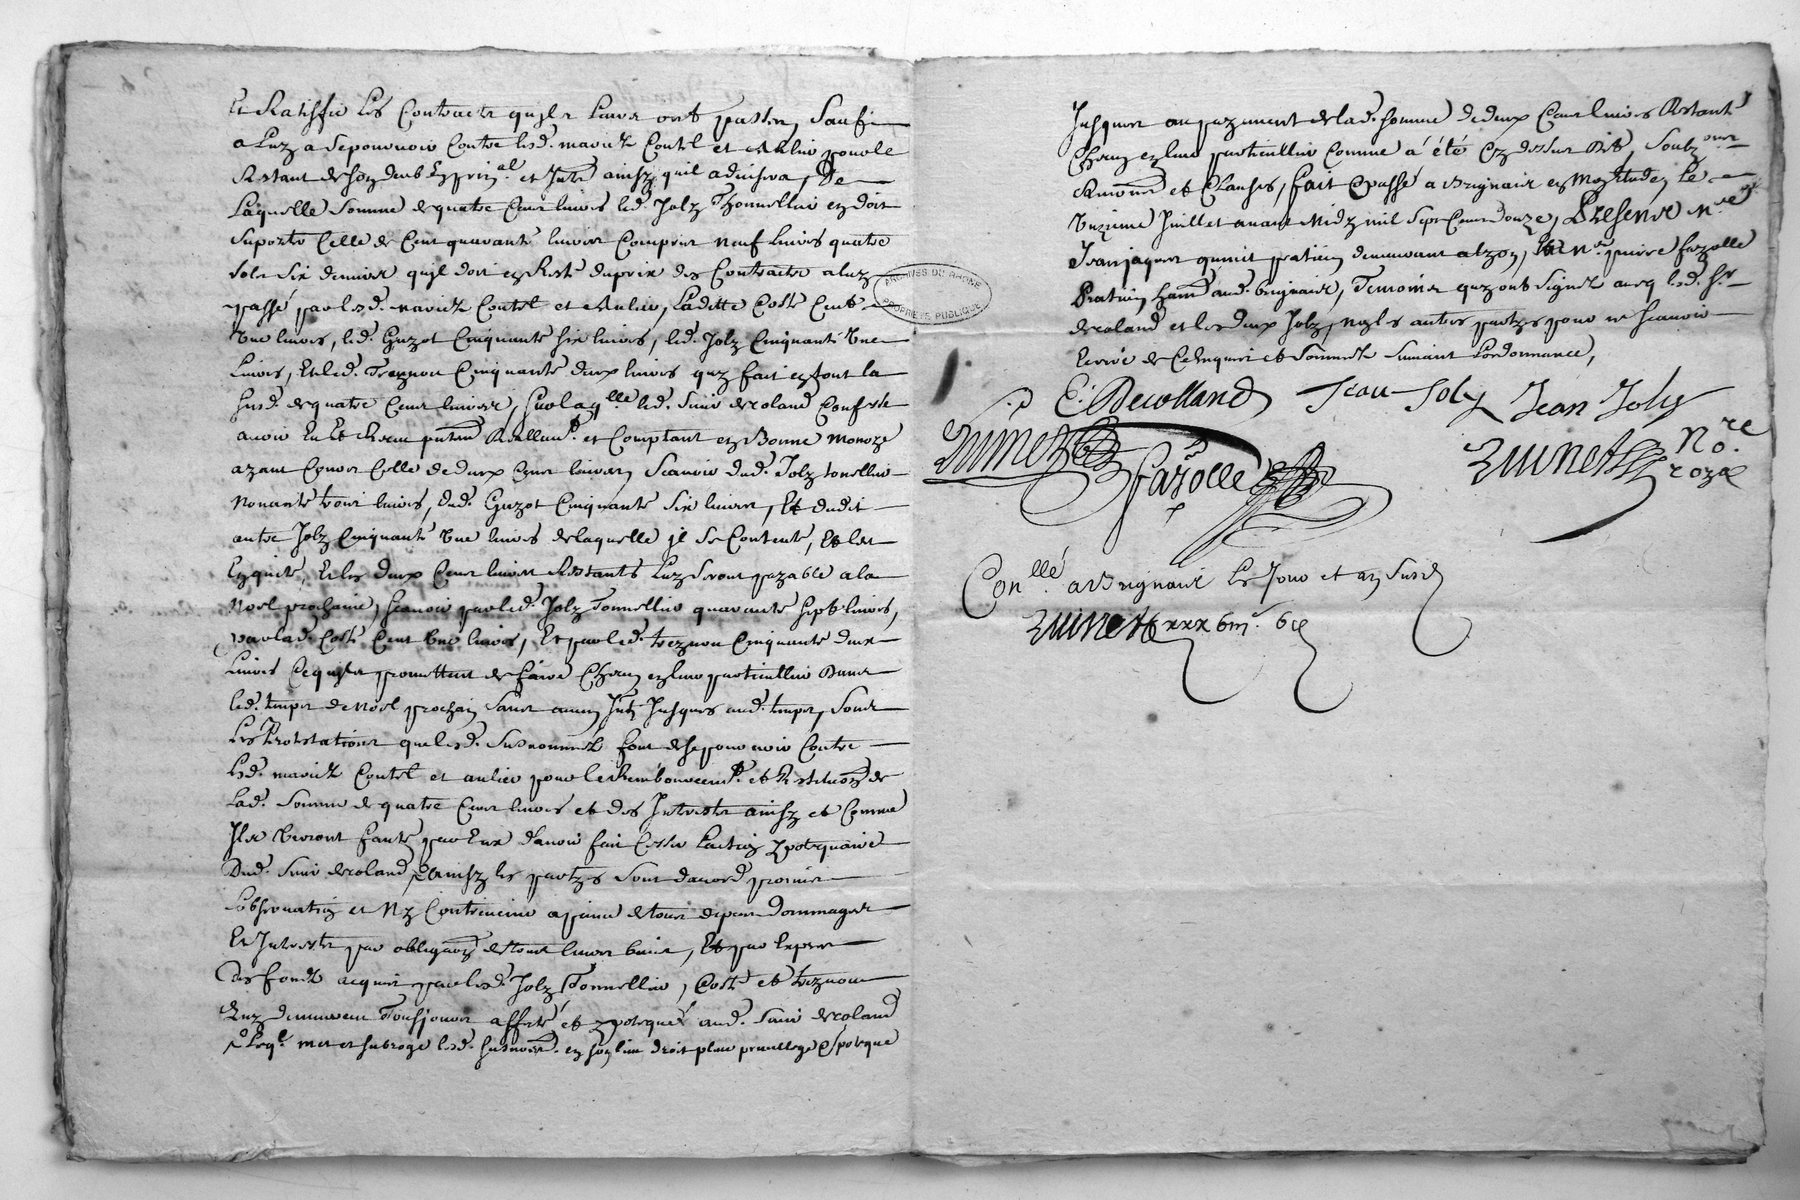 Et Ratiffié Les Contracts quils Leurs ont passés, Sauf
a Luy a se pourvoir Contre lesd. mariez Contel et Aulin pour le
Restant de son deub En prin.al et Inte ainsy quil advisera, De
Laquelle Somme de quatre Cens livres led. Joly Thonnellier en doit
Suporter Celle de Cent quarante livres Compris neuf livres quatre
sols six deniers quil doit en Reste du prix des Contracts a luy
passé par lesd. mariez Contel et Aulin, Laditte Coste Cent
Une livres, led. Guyot Cinquante six livres, led. Joly Cinquante Une
Livres, Et led. Treynou Cinquante deux livres quy fait en tout la
susd. de quatre Cens livres, sur laq.lle led. Sieur decoland Confesse
avoir Eu et Receu Reellem.t et Comptant en Bonne monoye
ayant Cours Celle de deux Cens livres, Scavoir dud. Joly tonellier
Nonante trois livres, dud. Guyot Cinquante Six livres, Et dudit
autre Joly Cinquante Une livres de laquelle il se Contente, Et les
En quite, Et les deux Cens livres Restants Luy seront payable a la
Noel prochaine, scavoir par led. Joly Tonnellier quarante sept livres,
par lad. Coste Cent Une livres, Et par led. treynou Cinquante deux
Livres Ce quils promettent de faire Chacun en leur particullier Dans
led. temps de Noel prochain Sans aucun Jnte Jusques aud. temps, Sous
Les Protestations que lesd. Susnommez font de se pourvoir Contre
Lesd. mariez Contel et aulin pour le Rembourcem.t et Restitution de
Lad. Somme de quatre Cens livres et des Jnterests ainsy et Comme
Jls Verront faute par Eux d'avoir fait Cesser Laction ypotequaire
Dud. Sieur decoland, Et ainsy les partyes Sont d'acord promis
Lobservation et Ny Contrevenir a peine de tous depens Dommages
Et Jnterests par obligaon de tous leurs biens, Et par Expres
des fonds acquis par lesd. Joly Tonnellier, Coste et treynou
quy demeurent Tousjours affecté et ypotequé aud. Sieur decoland
Leql. met et subroge lesd. susnom. en son lieu droit place privillege et ypoteque
ARCHIVES DU RHONE
PROPRIETE PUBLIQUE
Jusques au payement de lad. somme de deux Cens livres Restant
Chacun en leur particullier Comme a été Cy dessus Dit, Soubz
et Clauses, fait et passé a Brignais en Mon Etude, Le
Unzieme Juillet avant Midy mil Sept Cens douze, Présens Mre
Jean Jaques quinet praticien demeurant alzon, Et Mr. pierre fayolle
Praticien aud. Brignais, Temoins quy ont Signez avec led. Sr
decoland et les deux Joly, Non les autres partyes pour ne scavoir
Ecrire de Ce Enquis et Sommez Suivant Lordonnance,
E: Decolland Jean Joly Jean Joly
Quinet
fayolle
Quinet No.re
royal
Con.llé a Brignais Les Jour et an Susd
Quinet